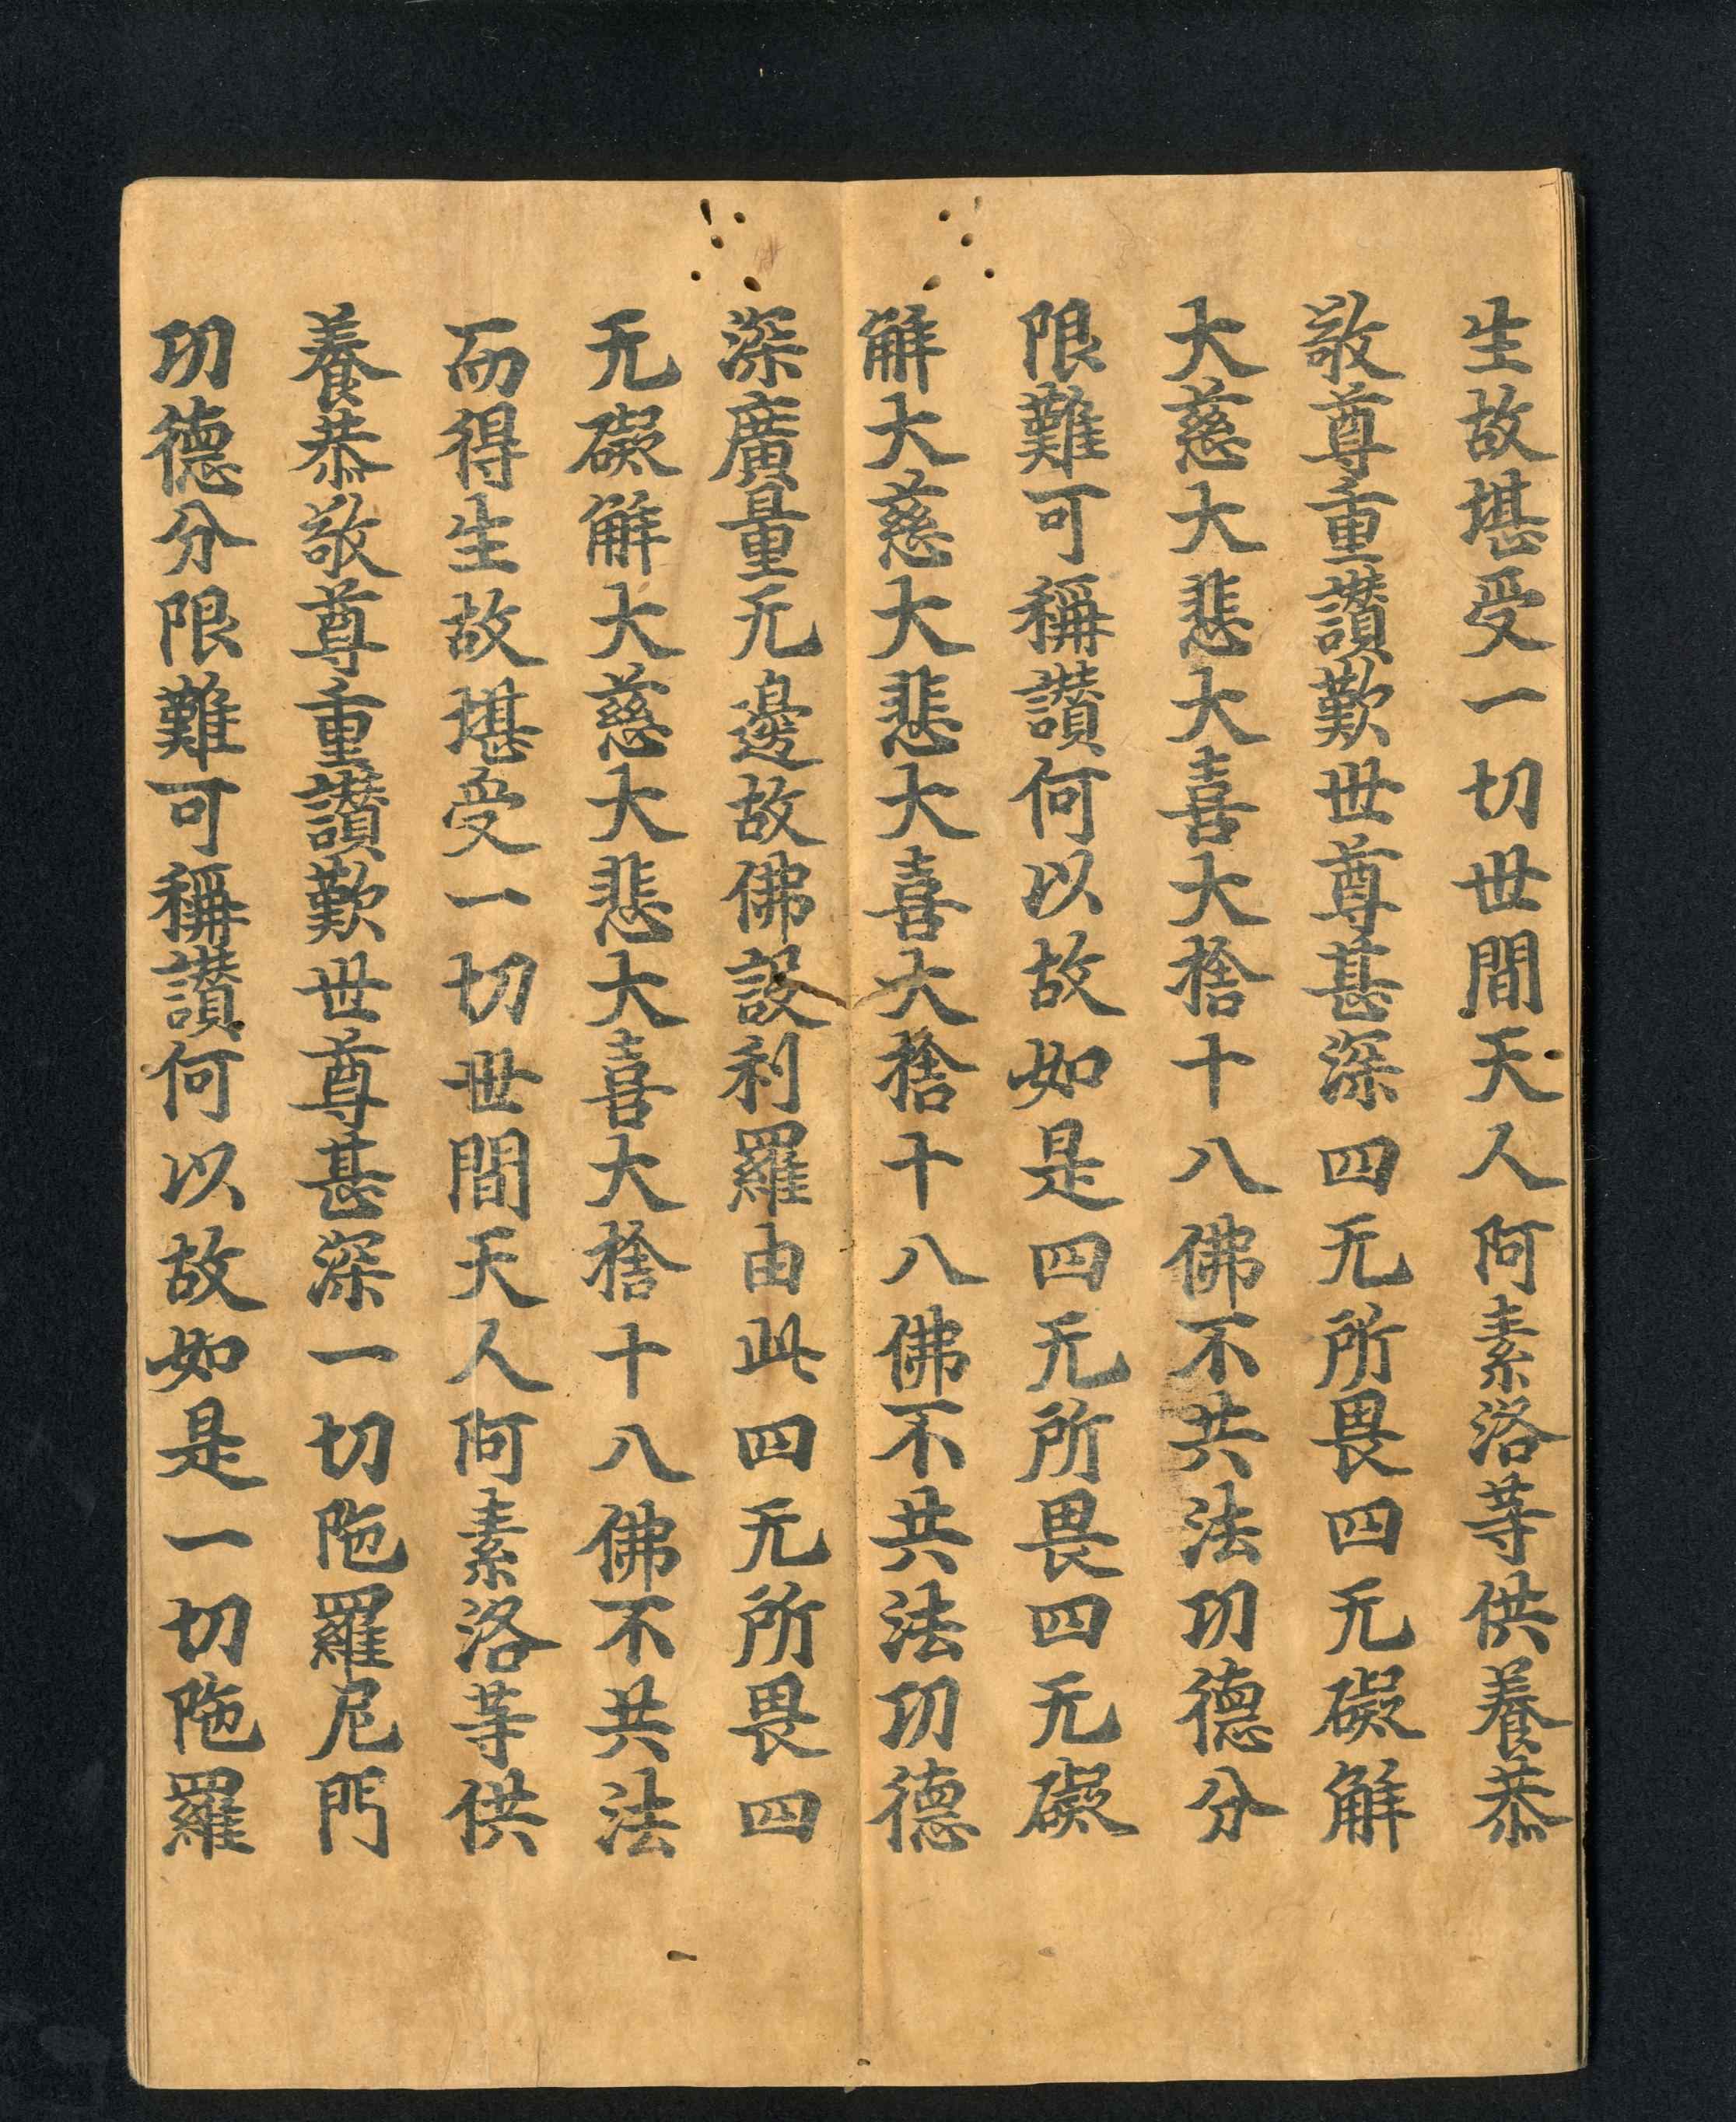 生故堪受一切世間天人阿素洛等供養恭
敬尊重讚歎世尊甚深四无所畏四无礙解
大慈大悲大喜大捨十八佛不共法功德分
限難可稱讚何以故如是四无所畏四无礙
解大慈大悲大喜大捨十八佛不共法功德
深廣量无邊故佛設利羅由此四无所畏四
无礙解大慈大悲大喜大捨十八佛不共法
而得生故堪受一切世間天人阿素洛等供
養恭敬尊重讚歎世尊甚深一切陁羅尼門
功德分限難可稱讚何以故如是一切陁羅